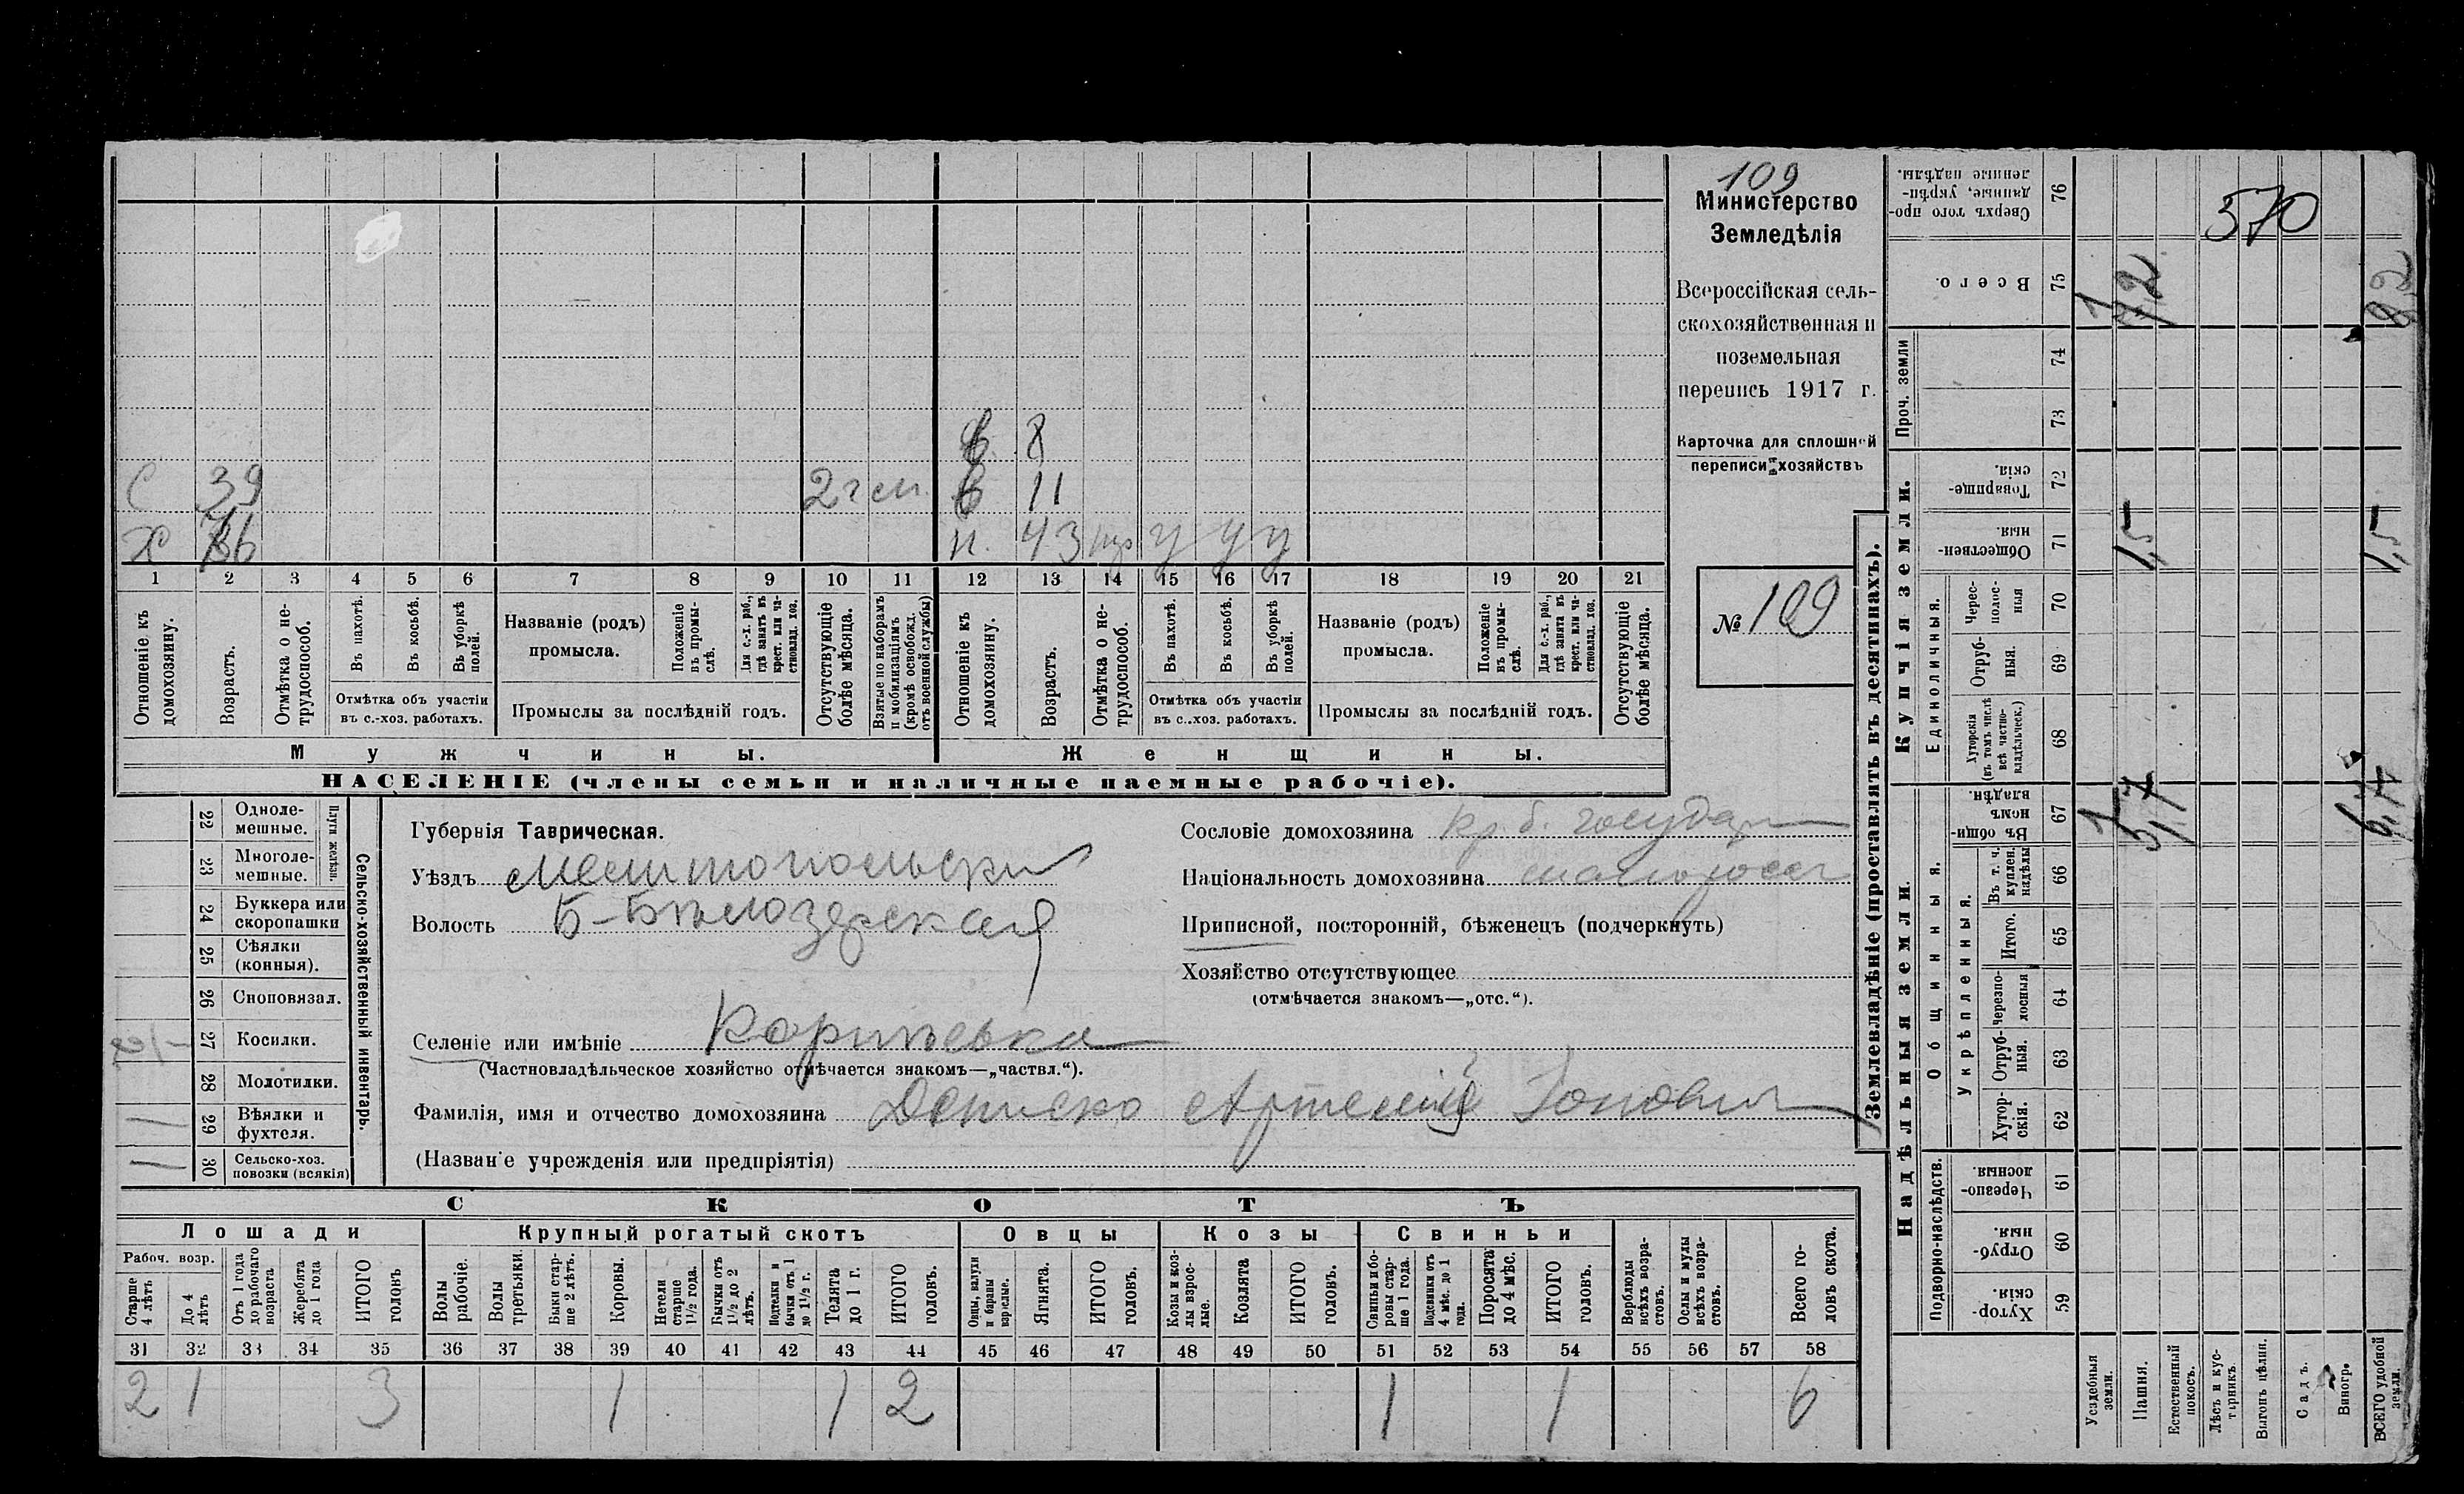 109
Министерство
Земледѣлія
Всероссійская сель-
скохозяйственная и
поземельная
перепись 1917 г.
Карточка для сплошной
переписи хозяйствъ
№ 109
в. 8
С 39 2 г сл. в 11
Х 43 н. у у у
1 2 3 4 5 6 7 8 9 10 11 12 13 14 15 16 17 18 19 20 21
Отношеніе къ домохозяину.
Возрастъ.
Отмѣтка о не-трудоспособ.
Въ пахотѣ.
Въ косьбѣ.
Въ уборкѣ полей.
Отмѣтка объ участіи
въ с.-хоз. работахъ.
Названіе (родъ)
промысла.
Положеніе въ промы-слѣ.
Для с.-х. раб., гдѣ занятъ въ крест. или ча-стновлад. хоз.
Промыслы за послѣдній годъ.
Отсутствующіе болѣе мѣсяца.
Взятые по наборамъ и мобилизаціямъ (кромѣ освобожд. отъ военной службы)
Отношеніе къ домохозяину.
Возрастъ.
Отмѣтка о не-трудоспособ.
Въ пахотѣ.
Въ косьбѣ.
Въ уборкѣ полей.
Отмѣтка объ участіи
въ с..хоз. работахъ.
Названіе (родъ)
промысла.
Положеніе въ промы-слѣ.
Для с.-х. раб., гдѣ занята въ крест. или ча-стновлад. хоз.
Промыслы за послѣдній годъ.
Отсутствующіе болѣе мѣсяца.
Мужчины.
Женщины.
НАСЕЛЕНІЕ (члены семьи и наличные наемные рабочіе).
Сельско-хозяйственный инвентарь.
Плуги желѣзн.
22 Одноле-мешные.
23 Многоле-мешные.
24 Буккера или скоропашки
25 Сѣялки (конныя).
26 Сноповязал.
27 Косилки.
28 Молотилки.
29 Вѣялки и фухтеля.
30 Сельско-хоз. повозки (всякія)
Губернія Таврическая.
Уѣздъ Мелитопольскій
Волость Б-Бѣлозерская
Селеніе или имѣніе
(Частновладѣльческое хозяйство отмѣчается знакомъ—„частвл.“).
Фамилія, имя и отчество домохозяина Артемій
(Названіе учрежденія или предпріятія)
Сословіе домохозяина кр. б. государ
Національность домохозяина малоросс
Приписной, посторонній, бѣженецъ (подчеркнуть)
Хозяйство отсутствующее
(отмѣчается знакомъ—„отс.“).
СКОТЪ
Лошади
Крупный рогатый скотъ
Овцы
Козы
Свиньи
Рабоч. возр.
Старше 4 лѣтъ
До 4 лѣтъ
Отъ 1 года до рабочаго возраста
Жеребята до 1 года
ИТОГО головъ
Волы рабочіе.
Волы третьяки.
Быки стар-ше 2 лѣтъ.
Коровы.
Нетели старше 1½ года.
Бычки отъ 1½ до 2 лѣтъ.
Подтелки и бычки отъ 1 до 1½ г.
Телята до 1 г.
ИТОГО головъ.
Овцы, валухи и бараны взрослые.
Ягнята.
ИТОГО головъ.
Козы и коз-лы взрос-лые.
Козлята
ИТОГО головъ.
Свиньи и бо-ровы стар-ше 1 года.
Подсвинки отъ 4 мѣс. до 1 года.
Поросята до 4 мѣс.
ИТОГО головъ.
Верблюды всѣхъ возра-стовъ.
Ослы и мулы всѣхъ возра-стовъ.
Всего го-ловъ скота.
31 32 33 34 35 36 37 38 39 40 41 42 43 44 45 46 47 48 49 50 51 52 53 54 55 56 57 58
2 1 3 1 1 2 1 1 6
Землевладѣніе (проставлять въ десятинахъ).
Купчія земли.
Надѣльныя земли.
Проч. земли
Единоличныя.
Общинныя.
Укрѣпленныя.
Подворно-наслѣдств.
76 Сверхъ того про-данные, укрѣп-ленные надѣлы. 570
75 Всего. 1 7,2 8,2
74
73
72 Товарище-скія.
71 Обществен-ныя. 1,5 1,5
70 Черес-полос-ныя
69 Отруб-ныя.
68 Хуторскія (въ томъ числѣ всѣ частно-владѣльческ.)
67 Въ общин-номъ владѣн. 1 5,7 6,7
66 Въ т. ч. куплен. надѣлы
65 Итого.
64 Черезпо-лосныя
63 Отруб-ныя.
62 Хутор-скія.
61 Черезпо-лосныя.
60 Отруб-ныя.
59 Хутор-скія.
Усадебныя земли.
Пашня.
Естественный покосъ.
Лѣсъ и кус-тарникъ.
Выгонъ цѣлин.
Садъ.
Виногр.
ВСЕГО удобной земли.